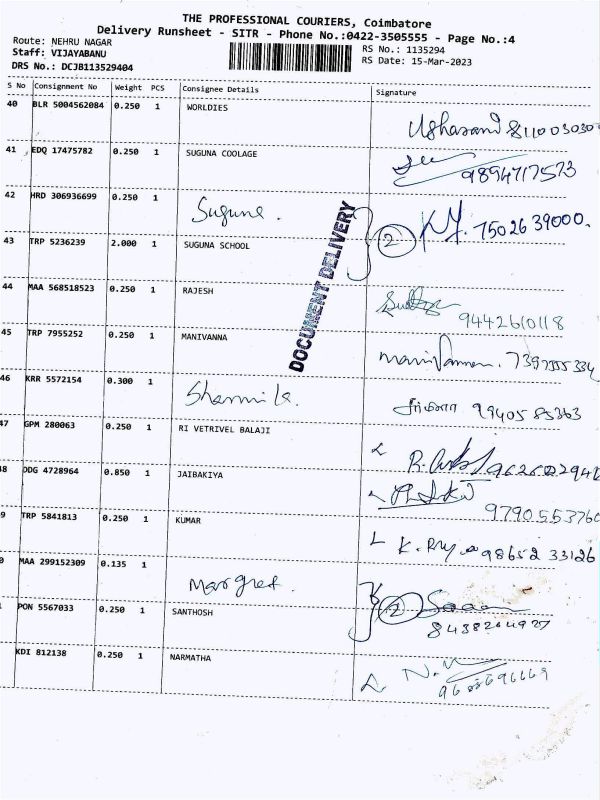 THE PROFESSIONAL COURIERS, Coimbatore
Delivery Runsheet - SITR - Phone No.:0422-3505555 - Page No.:4
Route: NEHRU NAGAR
Staff: VIJAYABANU
DRS No.: DCJB113529404
RS No.: 1135294
RS Date: 15-Mar-2023
S No Consignment No Weight PCS Consignee Details Signature
40 BLR 5004562084 0.250 1 WORLDIES
41 EDQ 17475782 0.250 1 SUGUNA COOLAGE 9894717573
42 HRD 306936699 0.250 1 Suguna.
DOCUMENT DELIVERY
2 7502639000.
43 TRP 5236239 2.000 1 SUGUNA SCHOOL
44 MAA 568518523 0.250 1 RAJESH 9442610118
45 TRP 7955252 0.250 1 MANIVANNA
46 KRR 5572154 0.300 1 Sharmila. 9940585363
47 GPM 280063 0.250 1 RI VETRIVEL BALAJI
48 DDG 4728964 0.850 1 JAIBAKIYA 9790553760
9 TRP 5841813 0.250 1 KUMAR 98652 33126
0 MAA 299152309 0.135 1 Margret.
2
PON 5567033 0.250 1 SANTHOSH
KDI 812138 0.250 1 NARMATHA